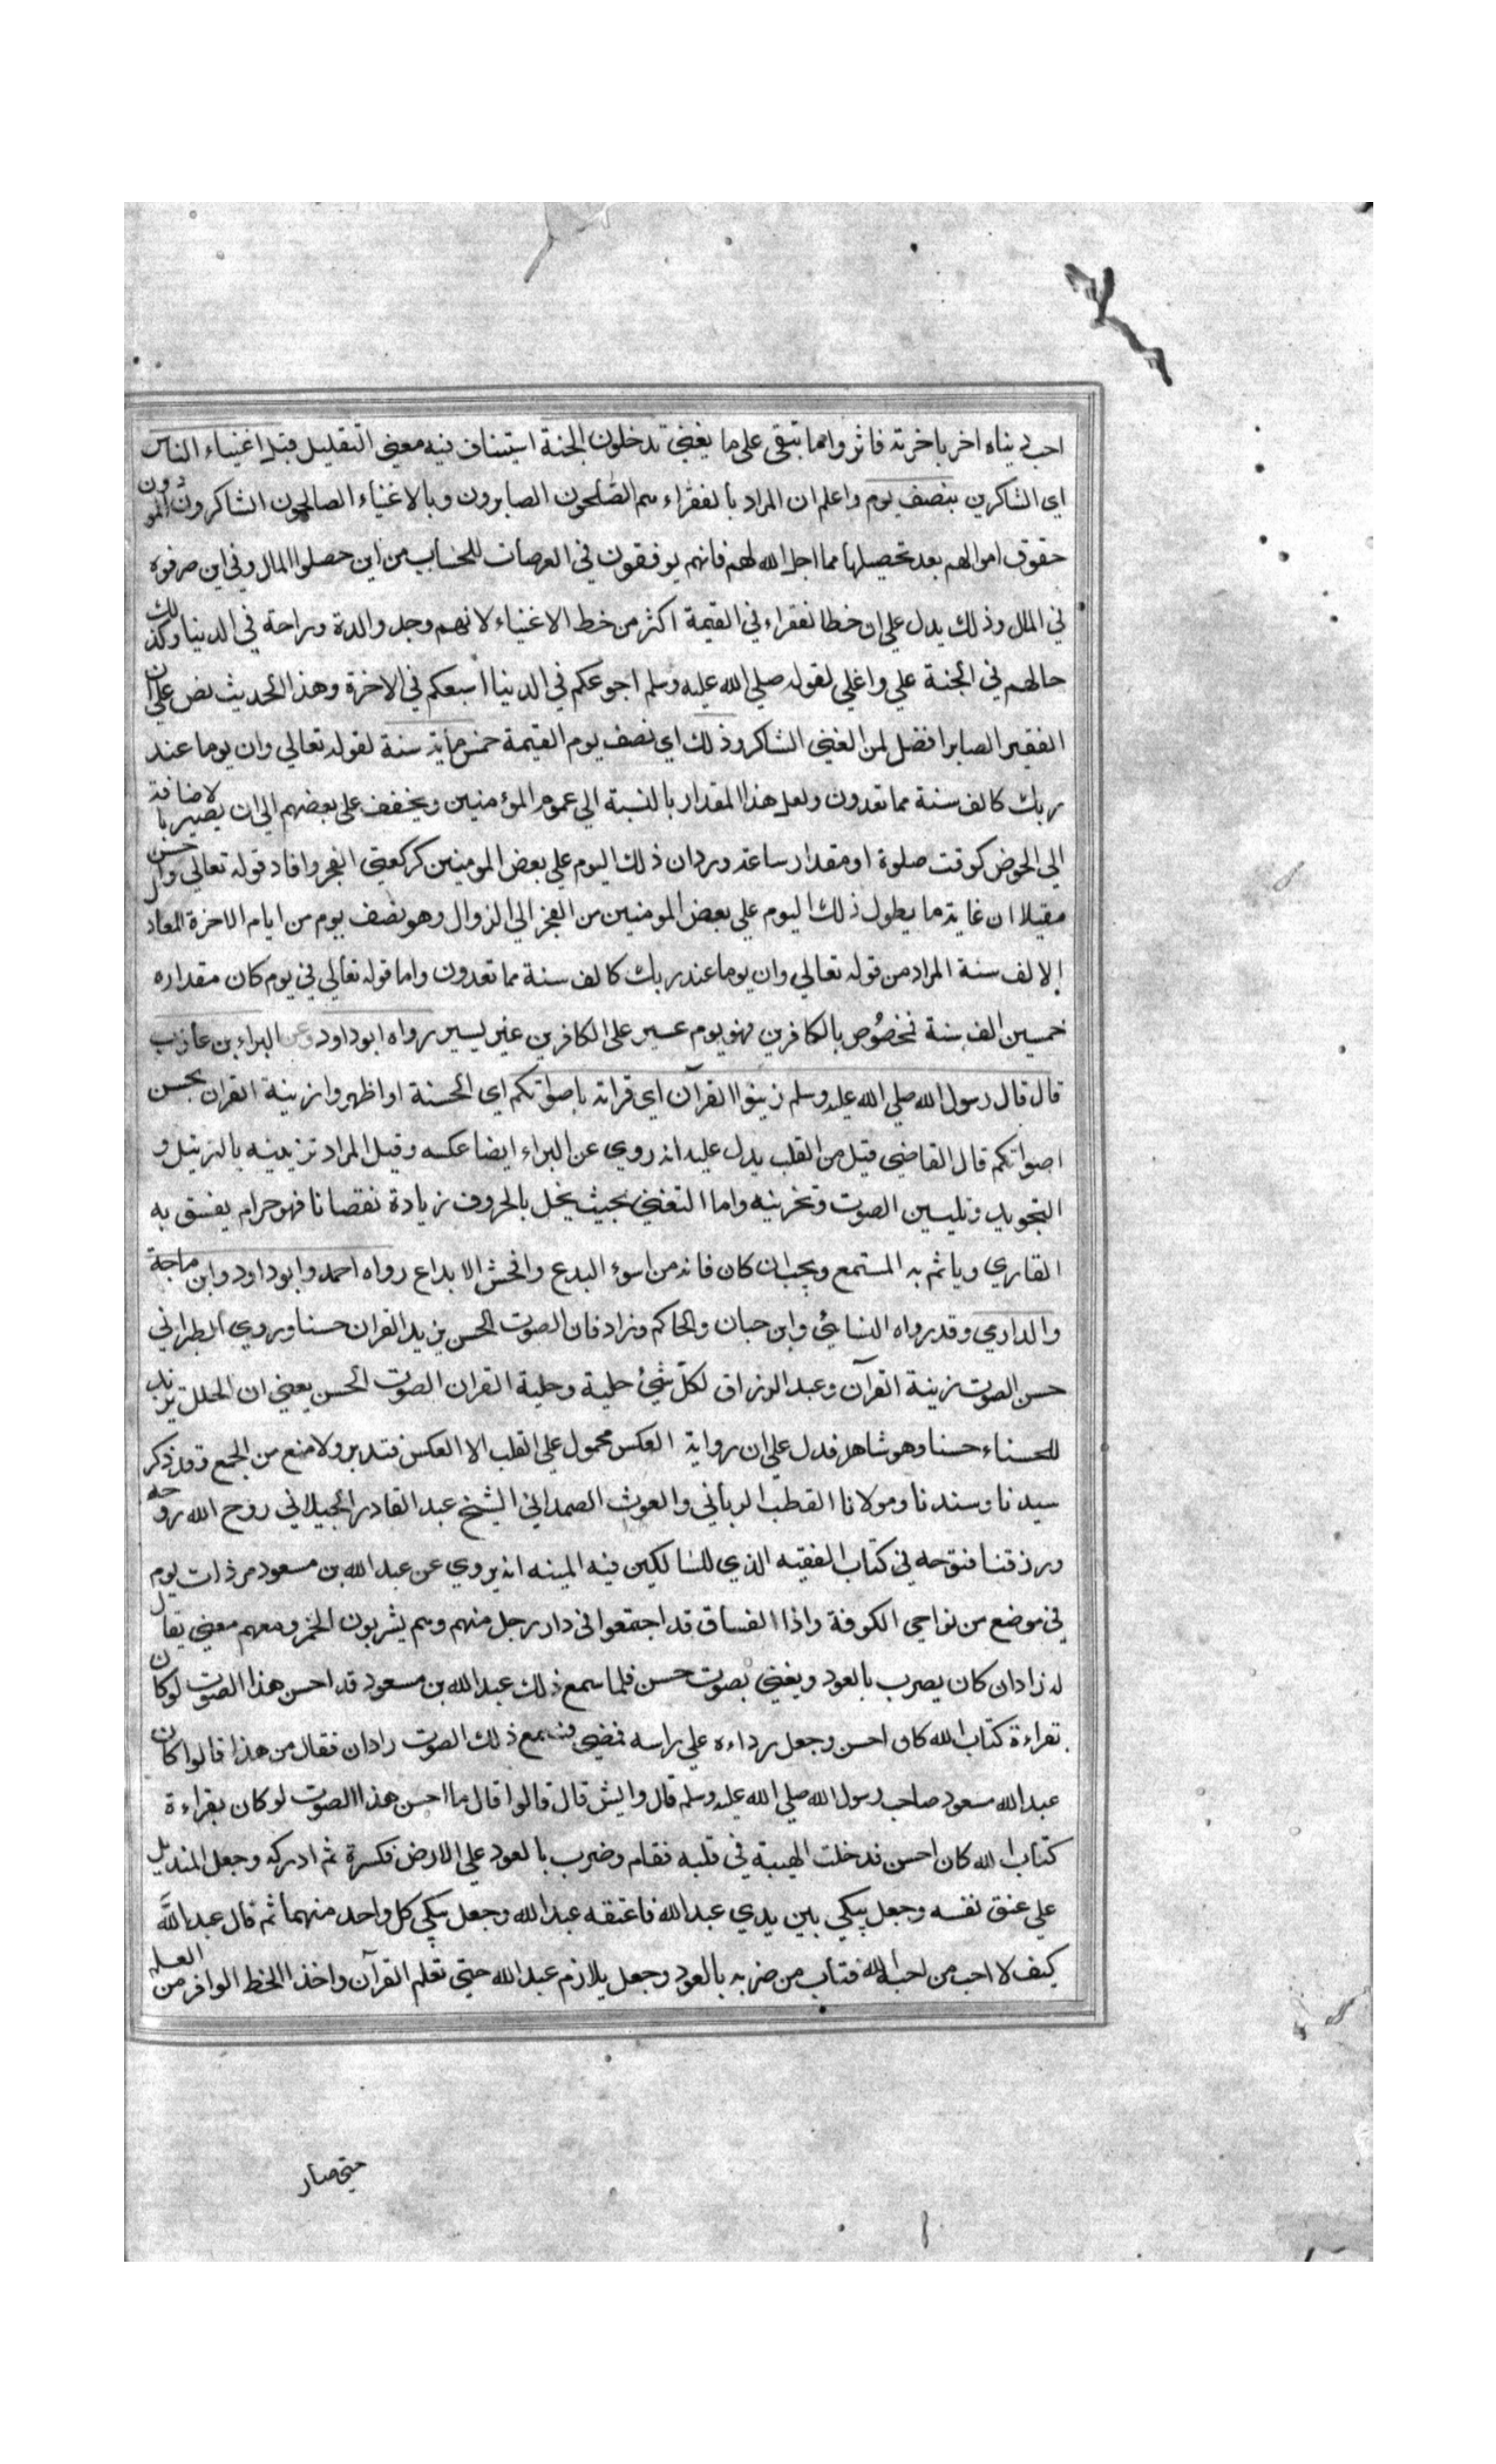 احب دنياه اخر باخرته فاثروا مما تبقى على ما يغني تدخلون الجنة استيناف فيه معني التقليل قبل اغنياء الناس
اي الشاكرين بنصف يوم واعلم ان المراد بالفقراء هم الصلحون الصابرون وبالاغنياء الصالحون الشاكرون المو دون
حقوق اموالهم بعد تحصيلها مما احل الله لهم فانهم يوقفون في العرصات للحساب من اين حصلوا المال وفي اين صرفوه
في المال وذلك يدل على ان خط الفقراء في القيمة اكثر من خط الاغنياء لانهم وجد والدة وراحة في الدنيا وكذلك
حالهم في الجنة علي واغلي لقوله صلي الله عليه وسلم اجوعكم في الدنيا اسبعكم في الاخرة وهذا الحديث نص علي ان
الفقير الصابر افضل من الغني الشاكر وذلك اي نصف يوم القيمة خمس ماية سنة لقوله تعالي وان يوما عند
ربك كالف سنة مما تعدون ولعل هذا المقدار بالنسبة الي عموم المؤمنين ويخفف على بعضهم الي ان يصير بالاضافة
الي الخوض كوقت صلوة او مقدار ساعة وردان ذلك اليوم علي بعض المومنين كركعتي الفجر وافاد قوله تعالي واحسن
مقيلا ان غاية ما يطول ذلك اليوم علي بعض المومنين من الفجر الي الزوال وهو نصف يوم من ايام الاخرة المعاد
الالف سنة المراد من قوله تعالي وان يوما عند ربك كالف سنة مما تعدون واما قوله تعالي في يوم كان مقداره
خمسين الف سنة فخصوص بالكافرين فهو يوم عسير على الكافرين غير يسير رواه ابو داود وعن البراء بن عازب
قال قال رسول الله صلي الله عليه وسلم زينوا القرآن اي قراته باصواتكم اي الحسنة او اظهروا زينة القران بحسن
اصواتكم قال القاضي قيل من القلب يدل عليه انه روي عن البراء ايضا عكسه وقيل المراد تزيينه بالترتيل و
التجويد وتليين الصوت وتحزينه واما التغني بحيث يخل بالحروف زيادة نقصانا فهو حرام يفسق به
القاري وياثم به المستمع ويجب ان كان فانه من اسوء البدع وافحش الابداع رواه احمد وابو داود وابن ماجة
والدارمي وقد رواه النسائي وابن حبان والحاكم وزاد فان الصوت الحسن يزيد القران حسنا وروي الطبراني
حسن الصوت زينة القرآن وعبد الرزاق لكل شئ حلية وحلية القران الصوت الحسن يعني ان الحلل تزيد
للحسناء حسنا وهو شاهد فدل على ان رواية العكس محمول علي القلب الا العكس فتدبر ولا منع من الجمع وقد ذكر
سيدنا وسندنا ومولانا القطب الرباني والغوث الصمداني الشيخ عبد القادر الجيلاني روح الله روحه
ورزقنا فتوحه في كتاب الفقيه الذي للسالكين فيه المينه انه يروي عن عبد الله بن مسعود مر ذات يوم
في موضع من نواحي الكوفة واذا الفساق قد اجتمعوا في دار رجل منهم وهم يشربون الخمر ومعهم مغني يقال
له زادان كان يصرب بالعود ويغني بصوت حسن فلما سمع ذلك عبد الله بن مسعود قد احسن هذا الصوت لو كان
بقراءة كتاب الله كان احسن وجعل رداءه علي راسه فمضي فسمع ذلك الصوت زادان فقال من هذا قالوا كان
عبد الله مسعود صاحب رسول الله صلي الله عليه وسلم قال وايش قال قالوا قال ما احسن هذا الصوت لو كان بقراءة
كتاب الله كان احسن فدخلت الهيبة في قلبه فقام وضرب بالعود علي الارض فكسرة ثم ادركه وجعل المنديل
علي عنق نفسه وجعل يبكي بين يدي عبد الله فاعنقه عبد الله وجعل يبكي كل واحد منهما ثم قال عبد الله
كيف لا احب من احبه الله فتاب من ضربه بالعود وجعل يلازم عبد الله حتي تعلم القرآن واخذ الخط الوافر من العلم
حتي صار